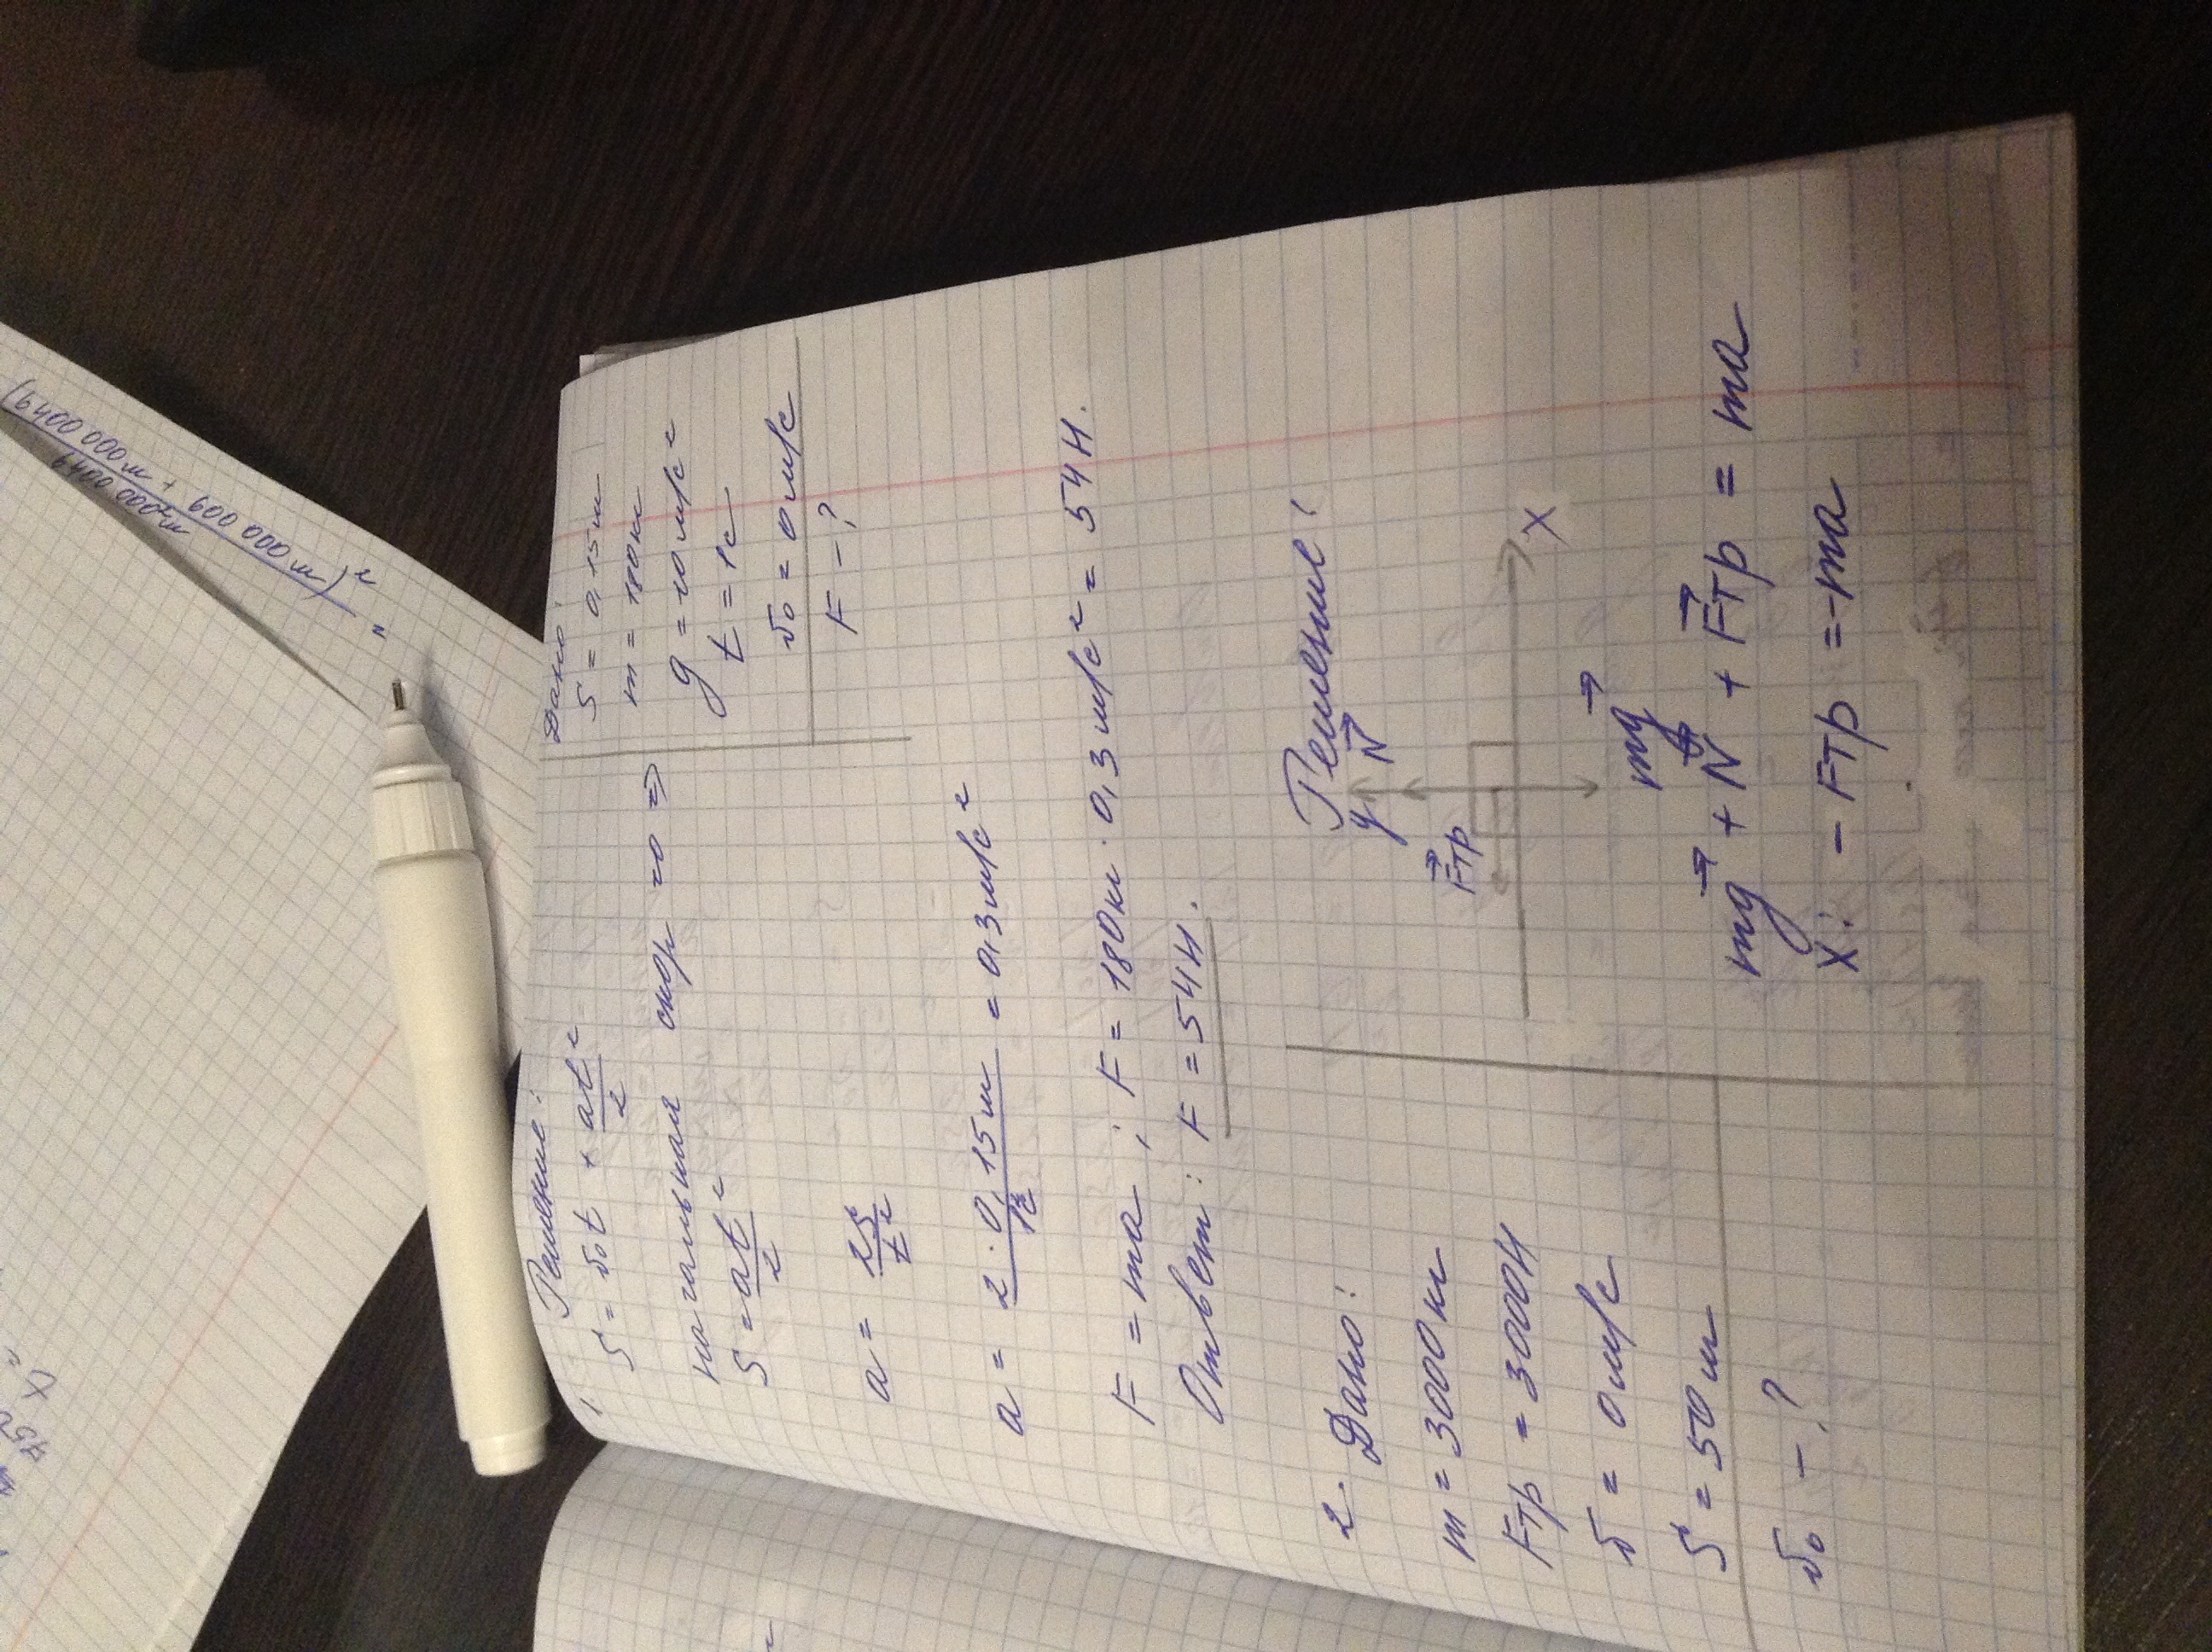 Дано:
S = 0,15м
m = 180кг
g = 10м/с²
t = 1с
v₀ = 0 м/с
F - ?
Решение:
S = v₀t + at²/2
начальная скор =0 =>
S = at²/2
a = 2S/t²
a = 2 · 0,15м/1с² = 0,3м/с²
F = ma ; F = 180кг · 0,3 м/с² = 54Н.
Ответ: F = 54Н.
2. Дано:
m = 3000кг
Fтр = 3000Н
v = 0м/с
S = 50м
v₀ - ?
Решение:
y N
Fтр
X
mg
mg + N + Fтр = ma
X: - Fтр = -ma
(6400 000м + 600 000м)²
6400 000²м